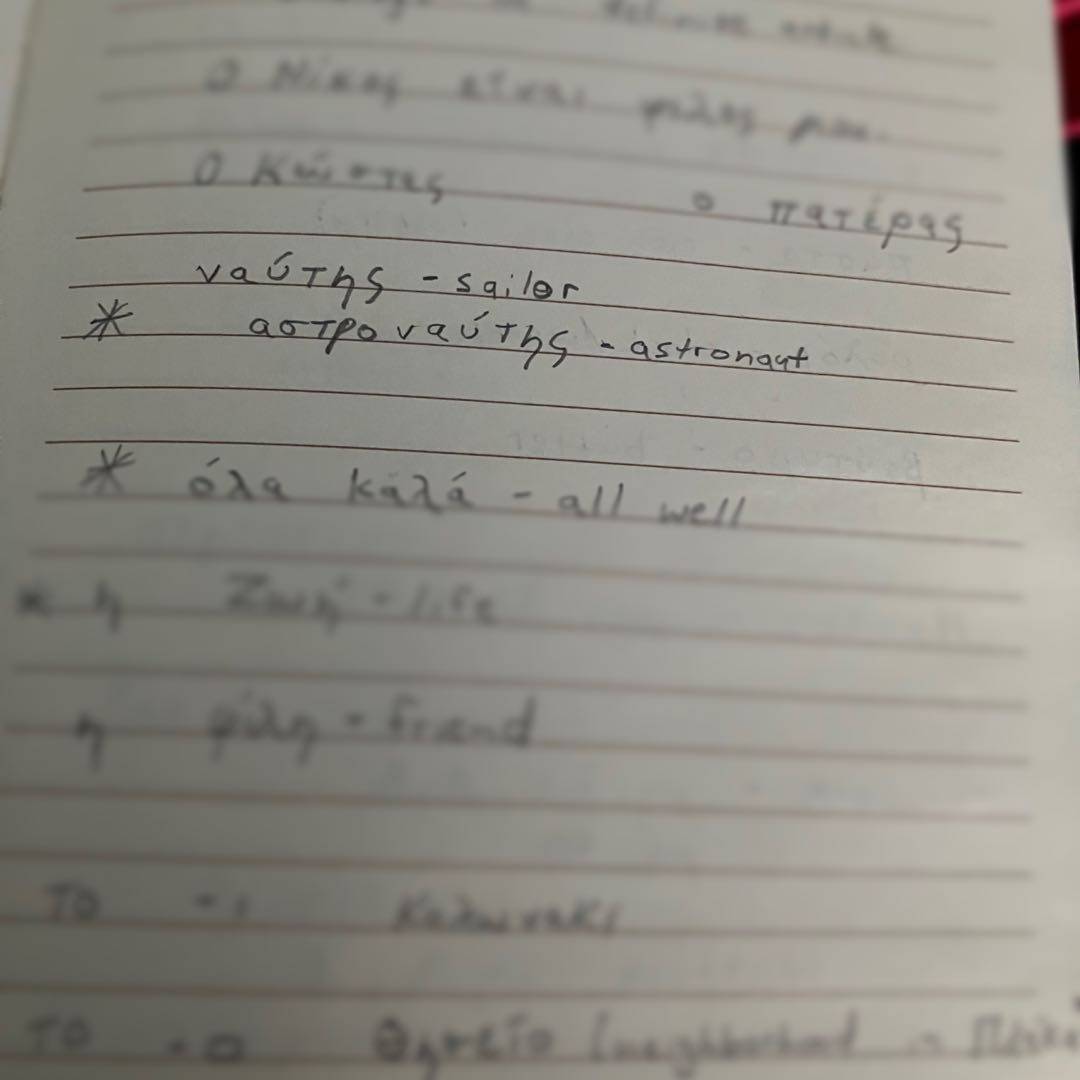 definite article
Ο Νίκος είναι φίλος μου.
Ο Κώστας ο πατέρας
ναύτης - sailor
* αστροναύτης - astronaut
* όλα καλά - all well
* η Ζωή - life
η φίλη - friend
το -ι
το -ο Θησείο (neighborhood